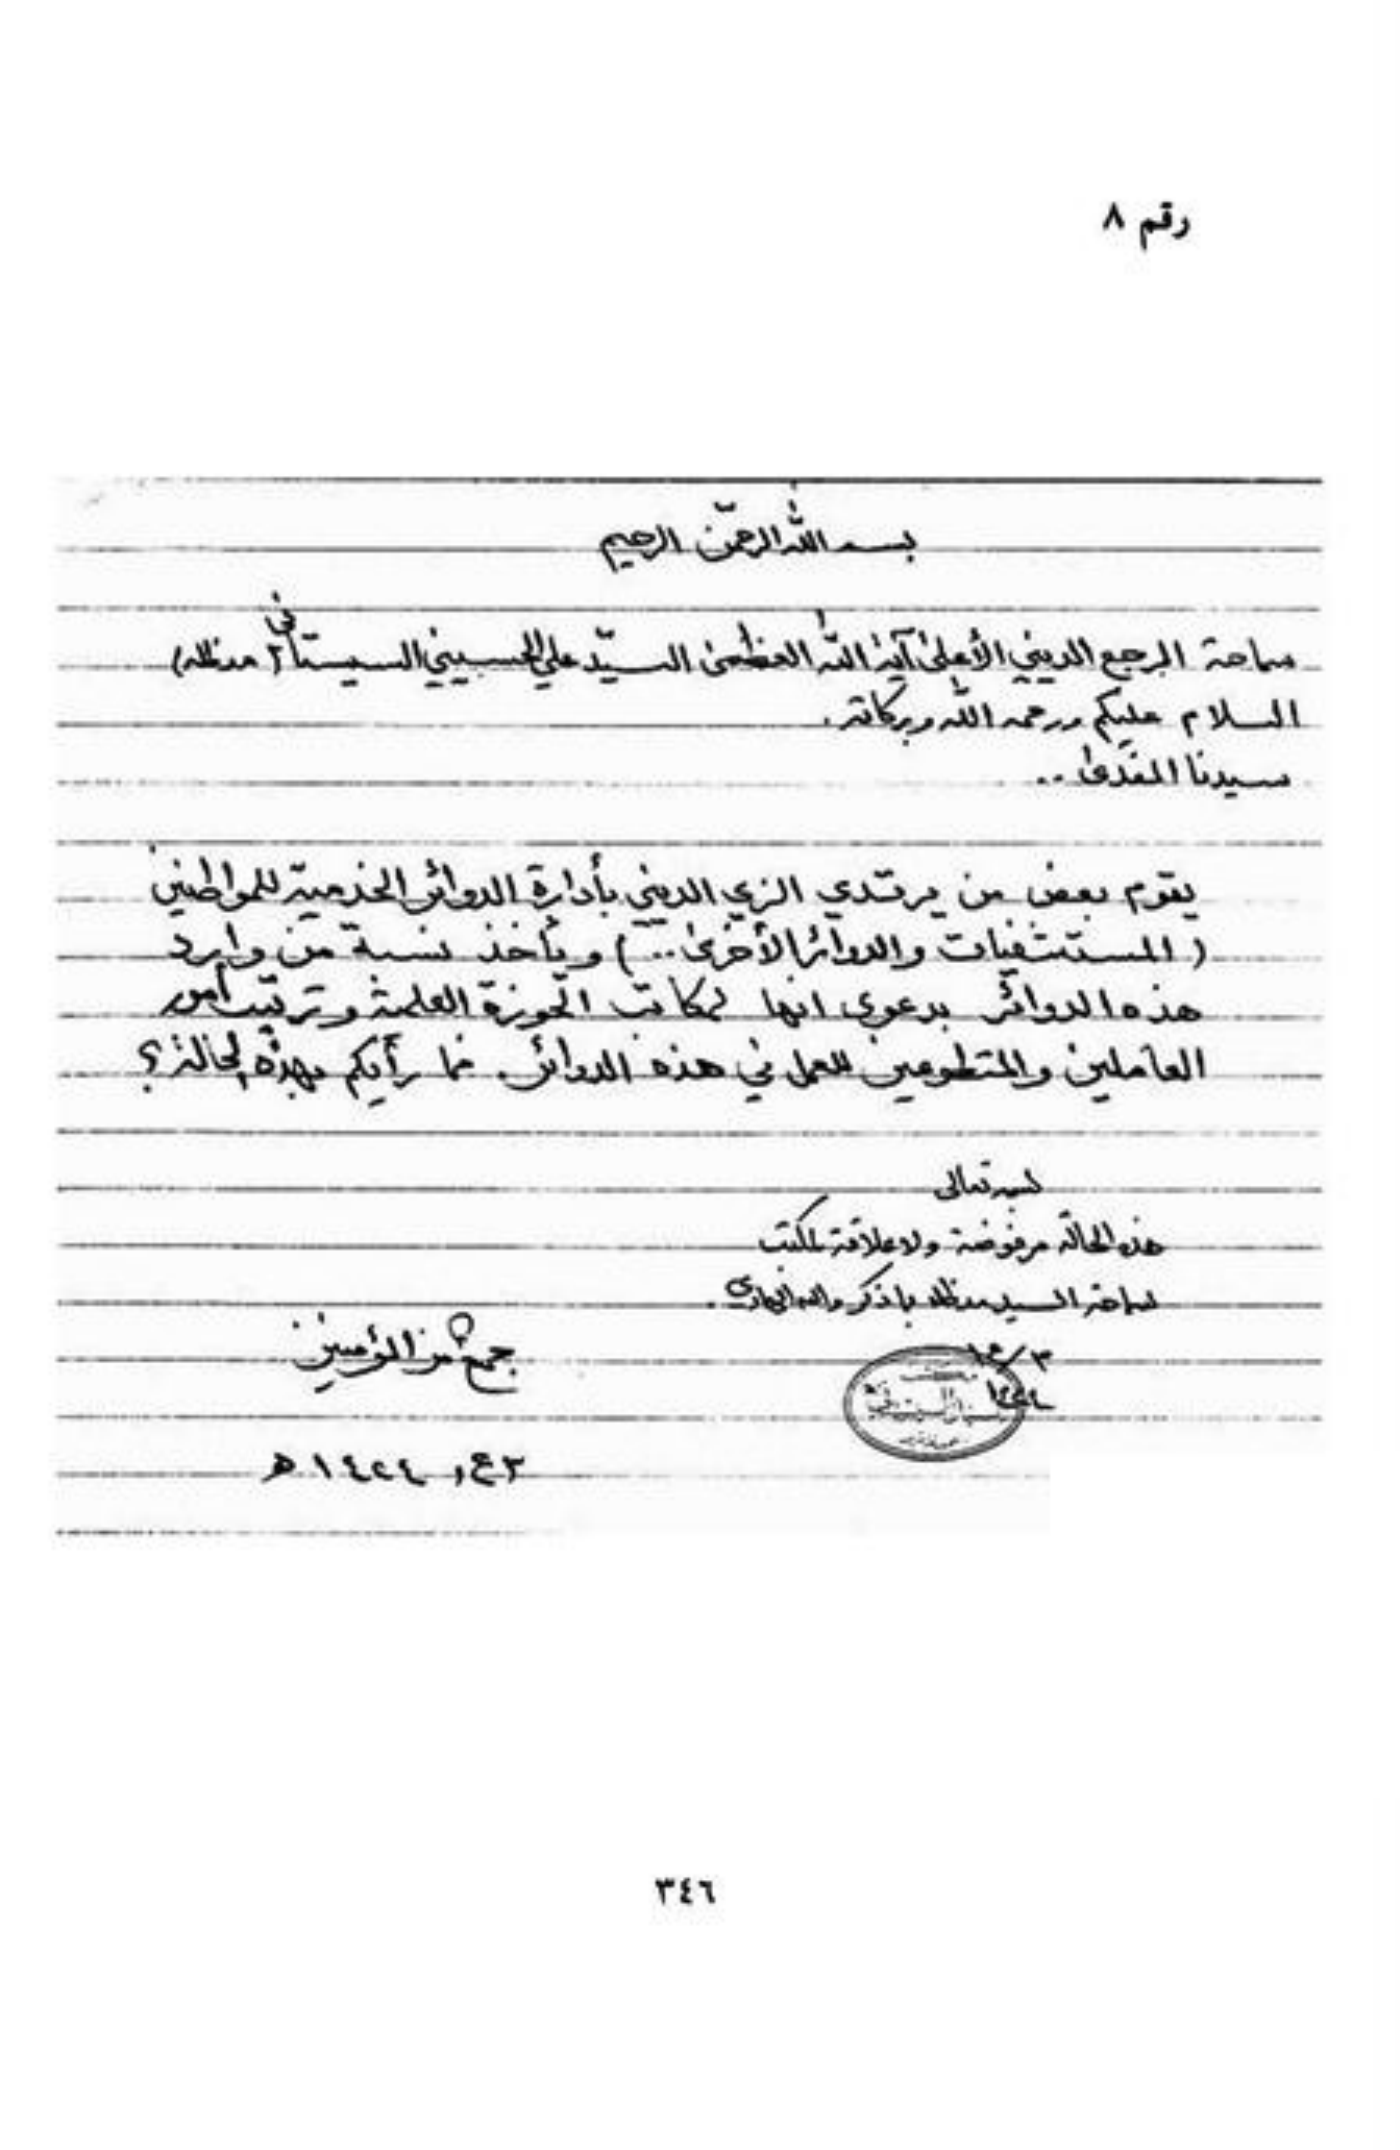 رقم ٨
بسم الله الرحمن الرحيم
سماحة المرجع الديني الأعلى آية الله العظمى السيد علي الحسيني السيستاني (مدظله)
السلام عليكم ورحمة الله وبركاته.
سيدنا المفدى..
يقوم بعض من يرتدي الزي الديني بأدارة الدوائر الخدمية للمواطنين
(المستشفيات والدوائر الأخرى..) ويأخذ نسبة من وارد
هذه الدوائر بدعوى انها لمكاتب الحوزة العلمية وترتيب أمور
العاملين والمتطوعين للعمل في هذه الدوائر. فما رأيكم بهذه الحالة؟
بسمه تعالى
هذه الحالة مرفوضة ولا علاقة لمكتب
سماحة السيد مدظله بما ذكر والله الهادي.
جمع من المؤمنين
١٤٢٤
٣ ع١ ١٤٢٤ هـ
٣٤٦